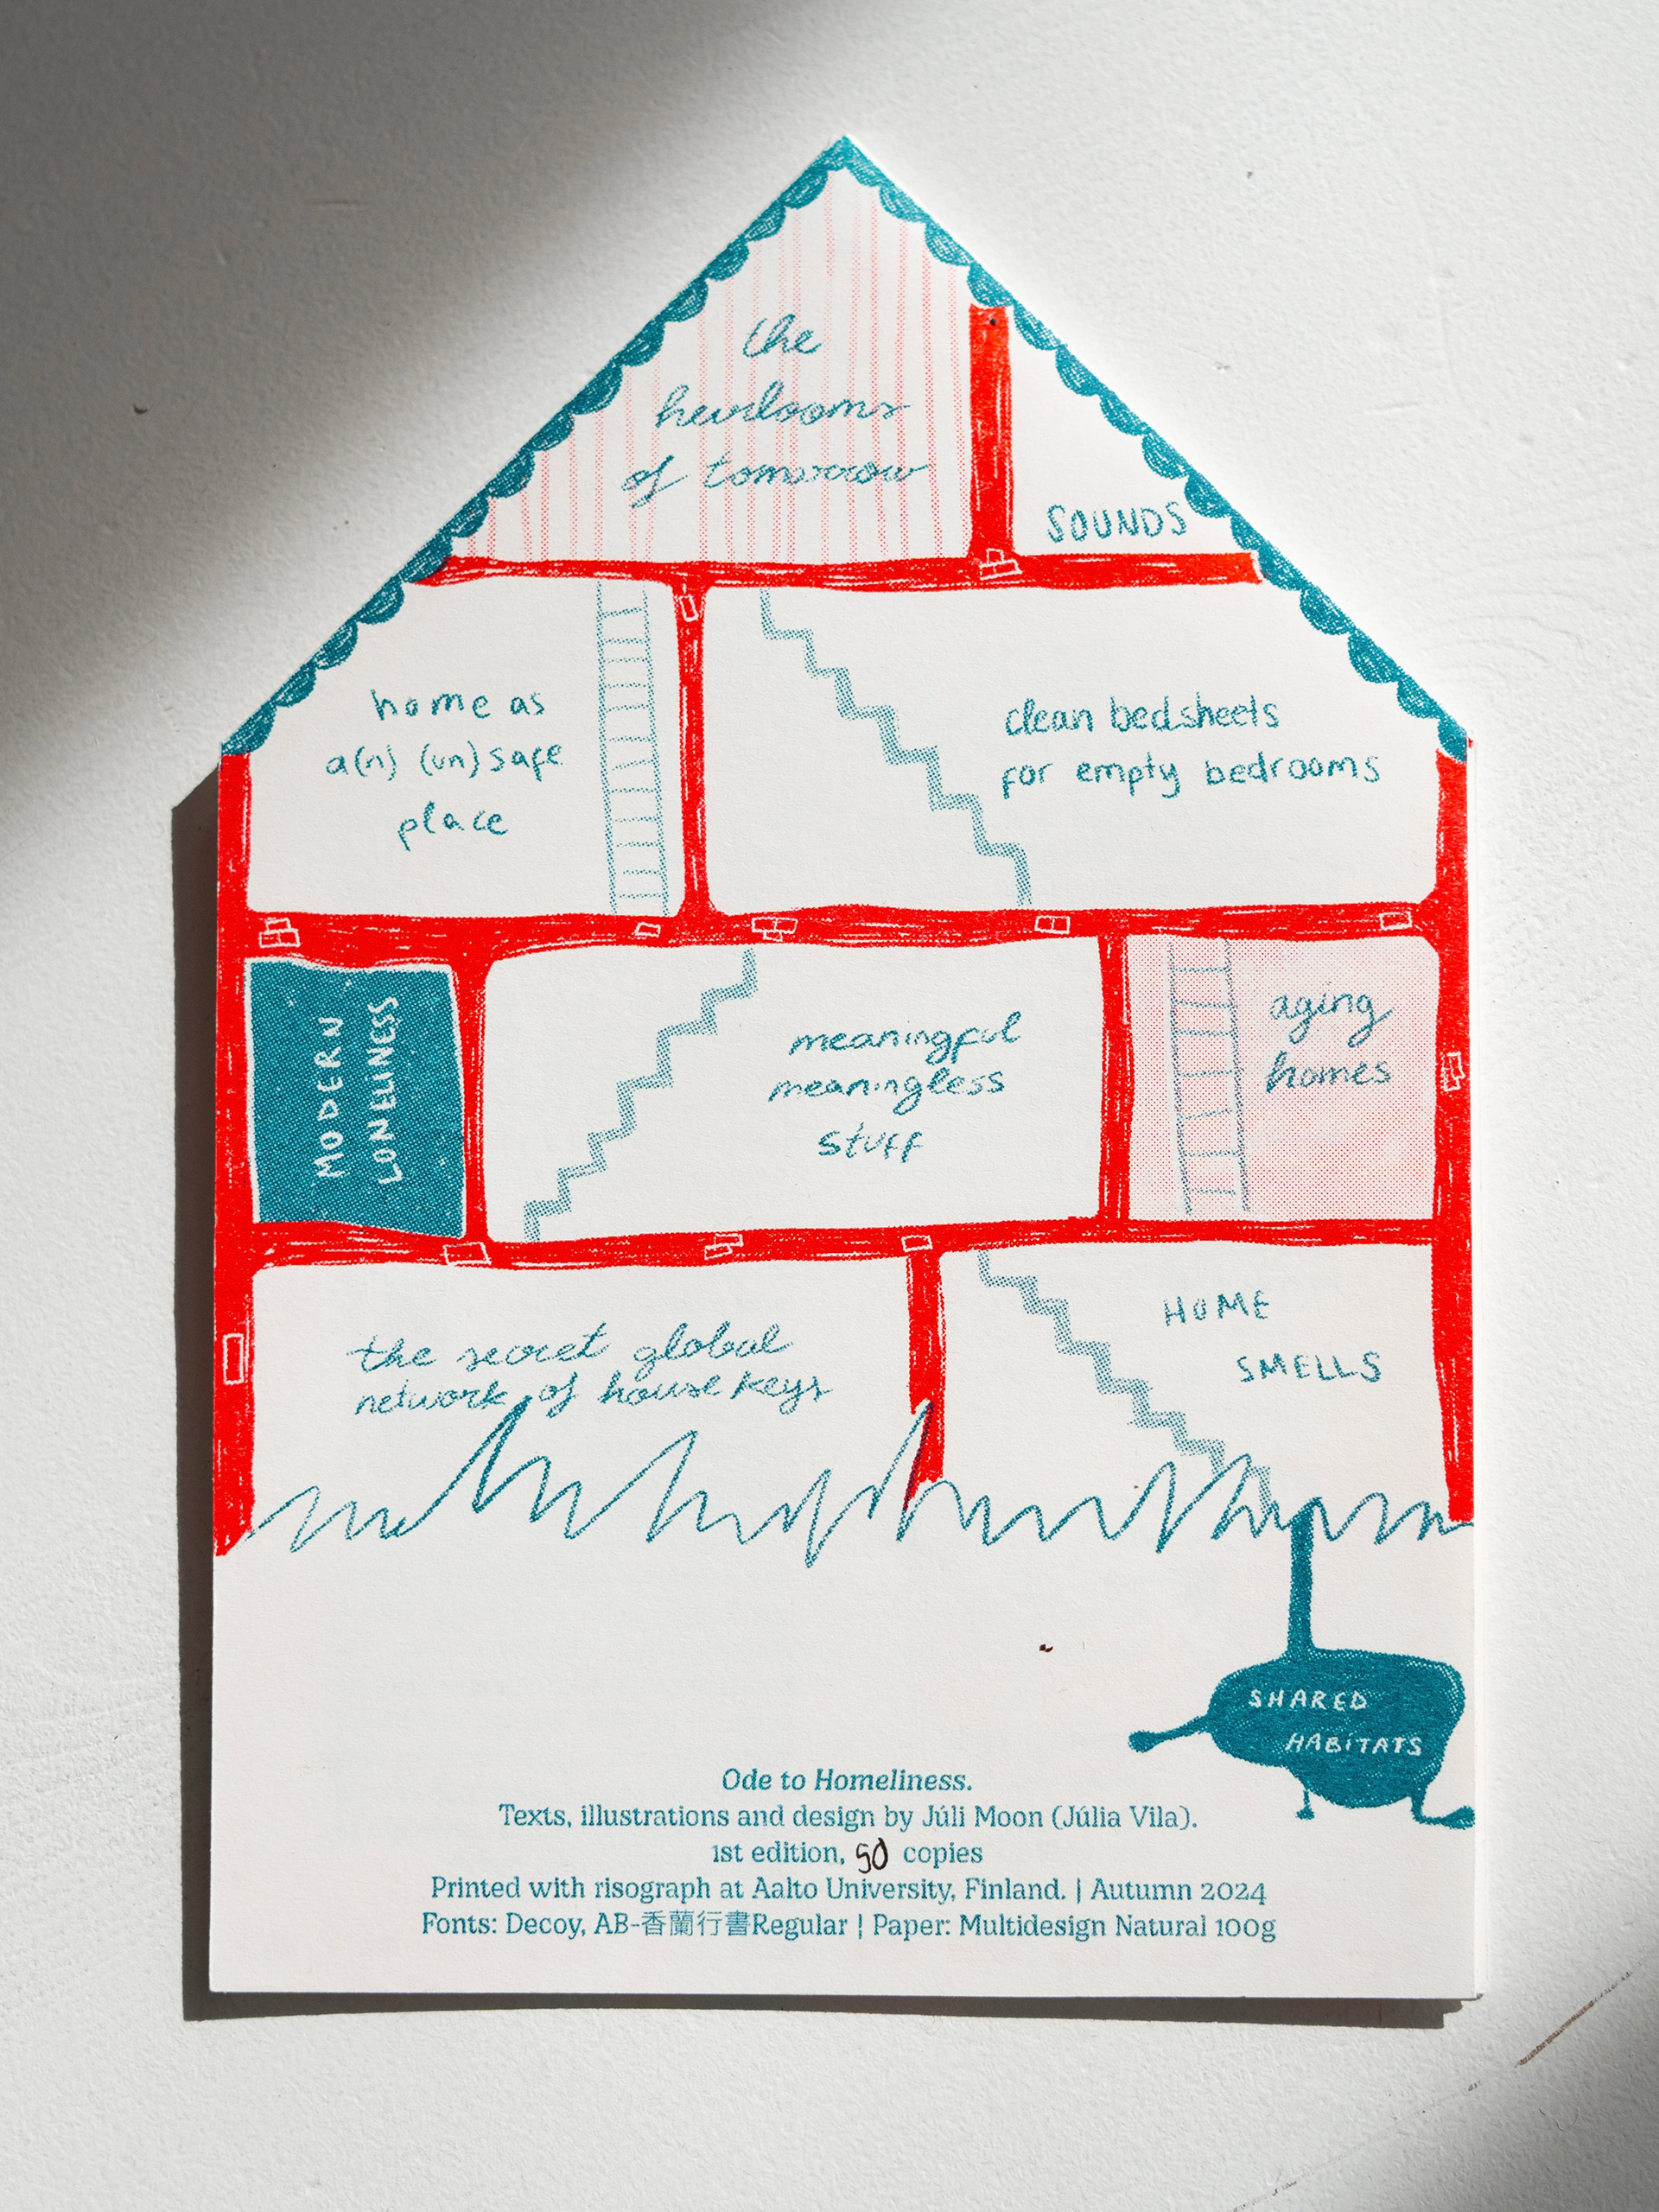 the
heirlooms
of tomorrow
SOUNDS
home as
a(n) (un)safe
place
clean bedsheets
for empty bedrooms
MODERN
LONELINESS
meaningful
meaningless
stuff
aging
homes
the secret global
network of house keys
HOME
SMELLS
SHARED
HABiTATS
Ode to Homeliness.
Texts, illustrations and design by Júli Moon (Júlia Vila).
1st edition, 50 copies
Printed with risograph at Aalto University, Finland. | Autumn 2024
Fonts: Decoy, AB-香蘭行書Regular ¦ Paper: Multidesign Natural 100g